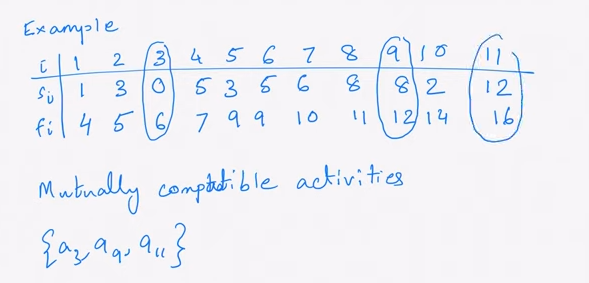 Example
i 1 2 3 4 5 6 7 8 9 10 11
si 1 3 0 5 3 5 6 8 8 2 12
fi 4 5 6 7 9 9 10 11 12 14 16
Mutually compatible activities
{a3, a9, a11}